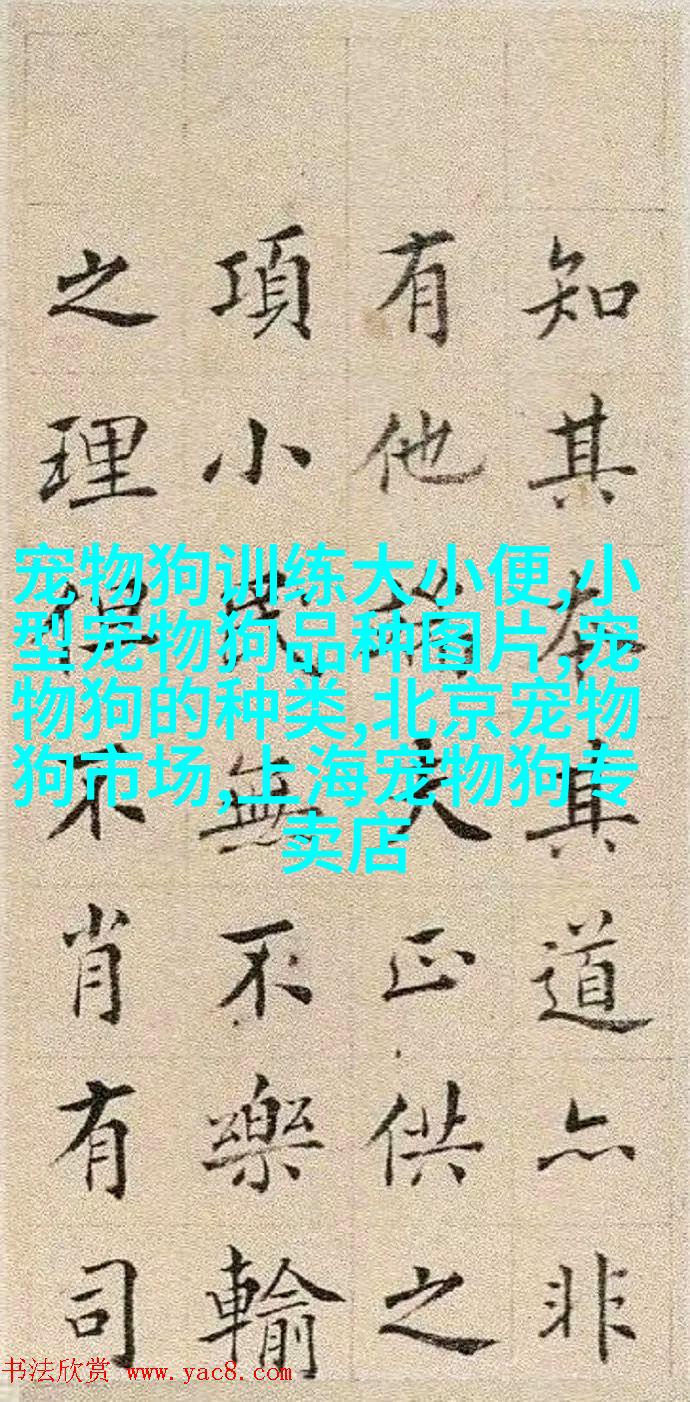 知其本其道亦非
有他夫正供之
項小民無不樂輸
之理但不肖有司
宠物狗训练大小便,小
型宠物狗品种图片,宠
物狗的种类,北京宠物
狗市场,上海宠物狗专
卖店
书法欣赏 www.yac8.com